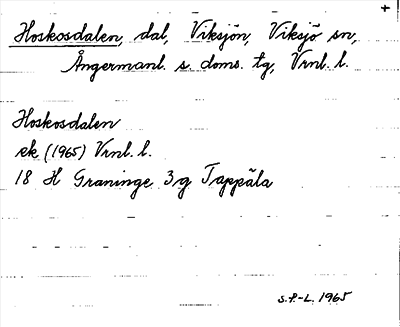 +
Hoskosdalen, dal, Viksjön, Viksjö sn,
Ångermanl. s. doms. tg, Vrnl. l.
Hoskosdalen
ek (1965) Vrnl. l.
18 H Graninge 3g Tappäla
S.F.-L. 1965